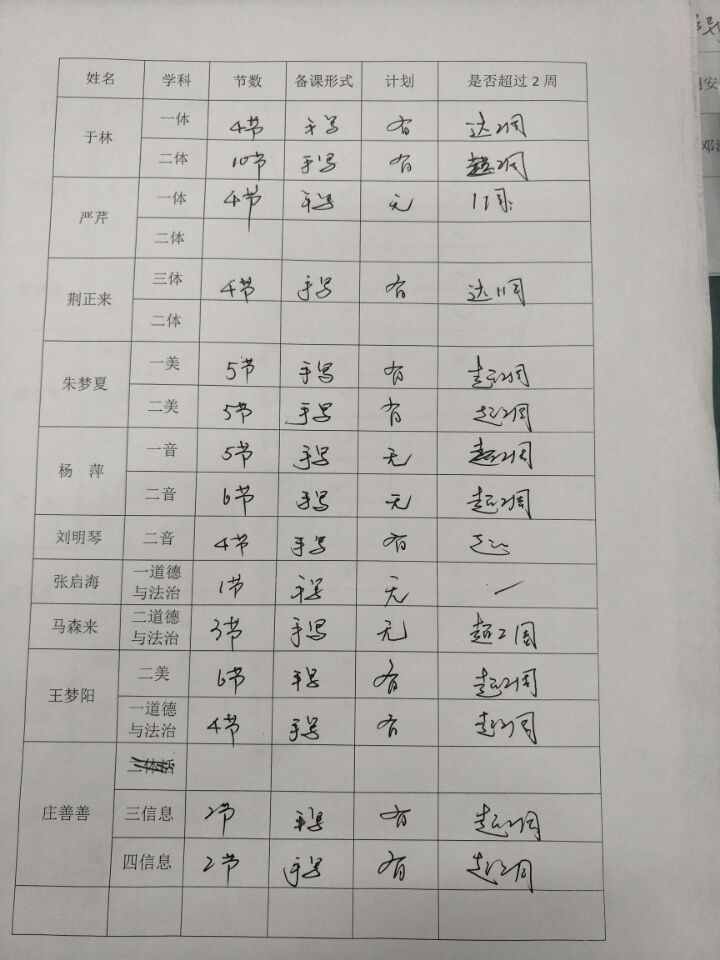 姓名 学科 节数 备课形式 计划 是否超过2周
于林 一体 4节 手写 有 达2周
二体 10节 手写 有 超2周
严芹 一体 4节 手写 无 1周
二体
荆正来 三体 4节 手写 有 达1周
二体
朱梦夏 一美 5节 手写 有 超2周
二美 5节 手写 有 超2周
杨 萍 一音 5节 手写 无 超2周
二音 6节 手写 无 超2周
刘明琴 二音 4节 手写 有
张启海 一道德与法治 1节 手写 无 一
马森来 二道德与法治 3节 手写 无 超2周
王梦阳 二美 6节 手写 有 超2周
一道德与法治 4节 手写 有 超2周
庄善善
三信息 2节 手写 有 超2周
四信息 2节 手写 有 超2周